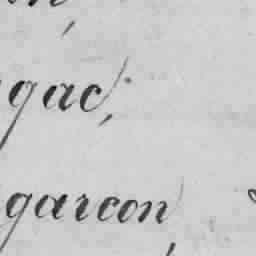 gac,
garcon,